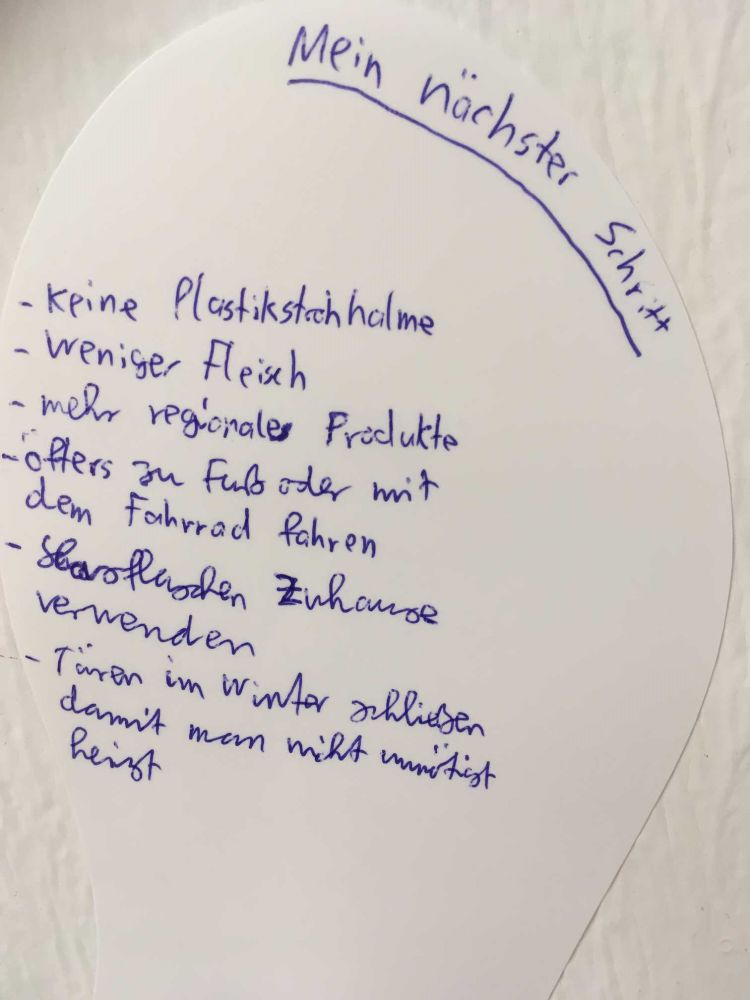 Mein nächster Schritt
- keine Plastikstrohhalme
- weniger Fleisch
- mehr regionale Produkte
- öfters zu Fuß oder mit
dem Fahrrad fahren
- Glasflaschen Zuhause
verwenden
- Türen im Winter schließen
damit man nicht unnötigt
heizt